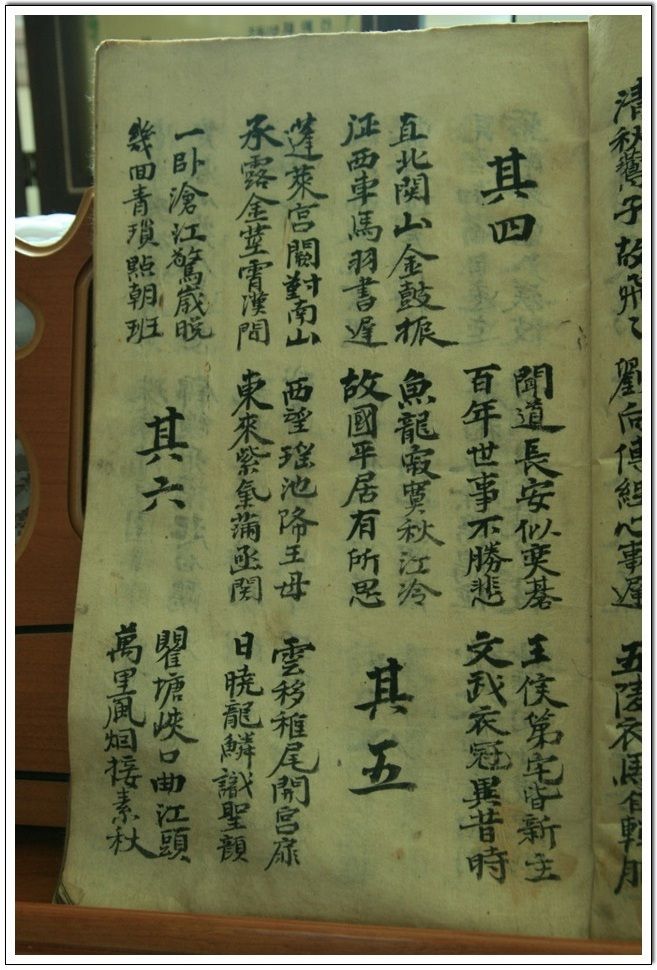 清秋鷰子故飛〻
劉向傳經心事遲
五陵衣馬自輕肥
其四
聞道長安似奕碁
百年世事不勝悲
王侯第宅皆新主
文武衣冠異昔時
直北関山金鼓振
征西車馬羽書遲
魚龍寂寞秋江冷
故國平居有所思
其五
蓬萊宮闕對南山
承露金莖霄漢間
西望瑶池降王母
東來紫氣蒲函関
雲移稚尾開宮扇
日曉龍鱗識聖顔
一卧滄江驚歲晩
幾回青瑣點朝班
其六
瞿塘峽口曲江頭
萬里風烟接素秋